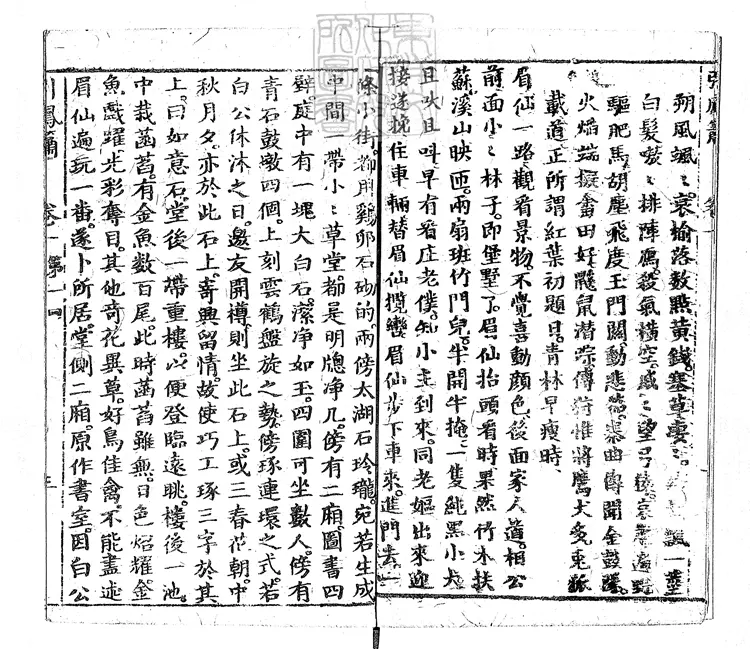 引鳳簫
卷一
朔風颯〻哀榆路數點黃錢塞草凄〻
白髮嗷〻排陣鴈殺氣橫空威〻望弓
驅肥馬胡塵飛度玉門關動悲笳秦曲傳聞金鼓
火焰端擬畬田好鼷鼠潛踪傳狩惟將鷹犬
載道正所謂紅葉初題日青林早瘦時
眉仙一路觀看景物不覺喜動顏色後面家人道相公
前面小〻林子即堡墅了眉仙抬頭看時果然竹木扶
蘇溪山映匝兩扇班竹門兒半開半掩一隻純黑小犬
且吠且叫早有看庄老僕知小主到來同老嫗出來迎
接遂挽住車輛替眉仙攬轡眉仙步下車來進門去一
條小街都用鷄卵石砂的兩傍太湖石玲瓏宛若生成
中間一帶小〻草堂都是明牕净几傍有二廂圖書四
壁庭中有一塊大白石潔净如玉四圍可坐數人傍有
青石鼓墩四個上刻雲鶴盤旋之勢傍琢連環之式若
白公休沐之日邀友開樽則坐此石上或三春花朝中
秋月夕亦於此石上寄興留情故使巧工琢三字於其
上曰如意石堂後一帶重樓以便登臨遠眺樓後一池
中栽菡萏有金魚數百尾此時菡萏雖無日色炤耀金
魚戲躍光彩奪目其他奇花異草好鳥佳禽不能盡述
眉仙遍玩一番遂卜所居堂側二廂原作書室因白公
引鳳簫
卷一
第一囬